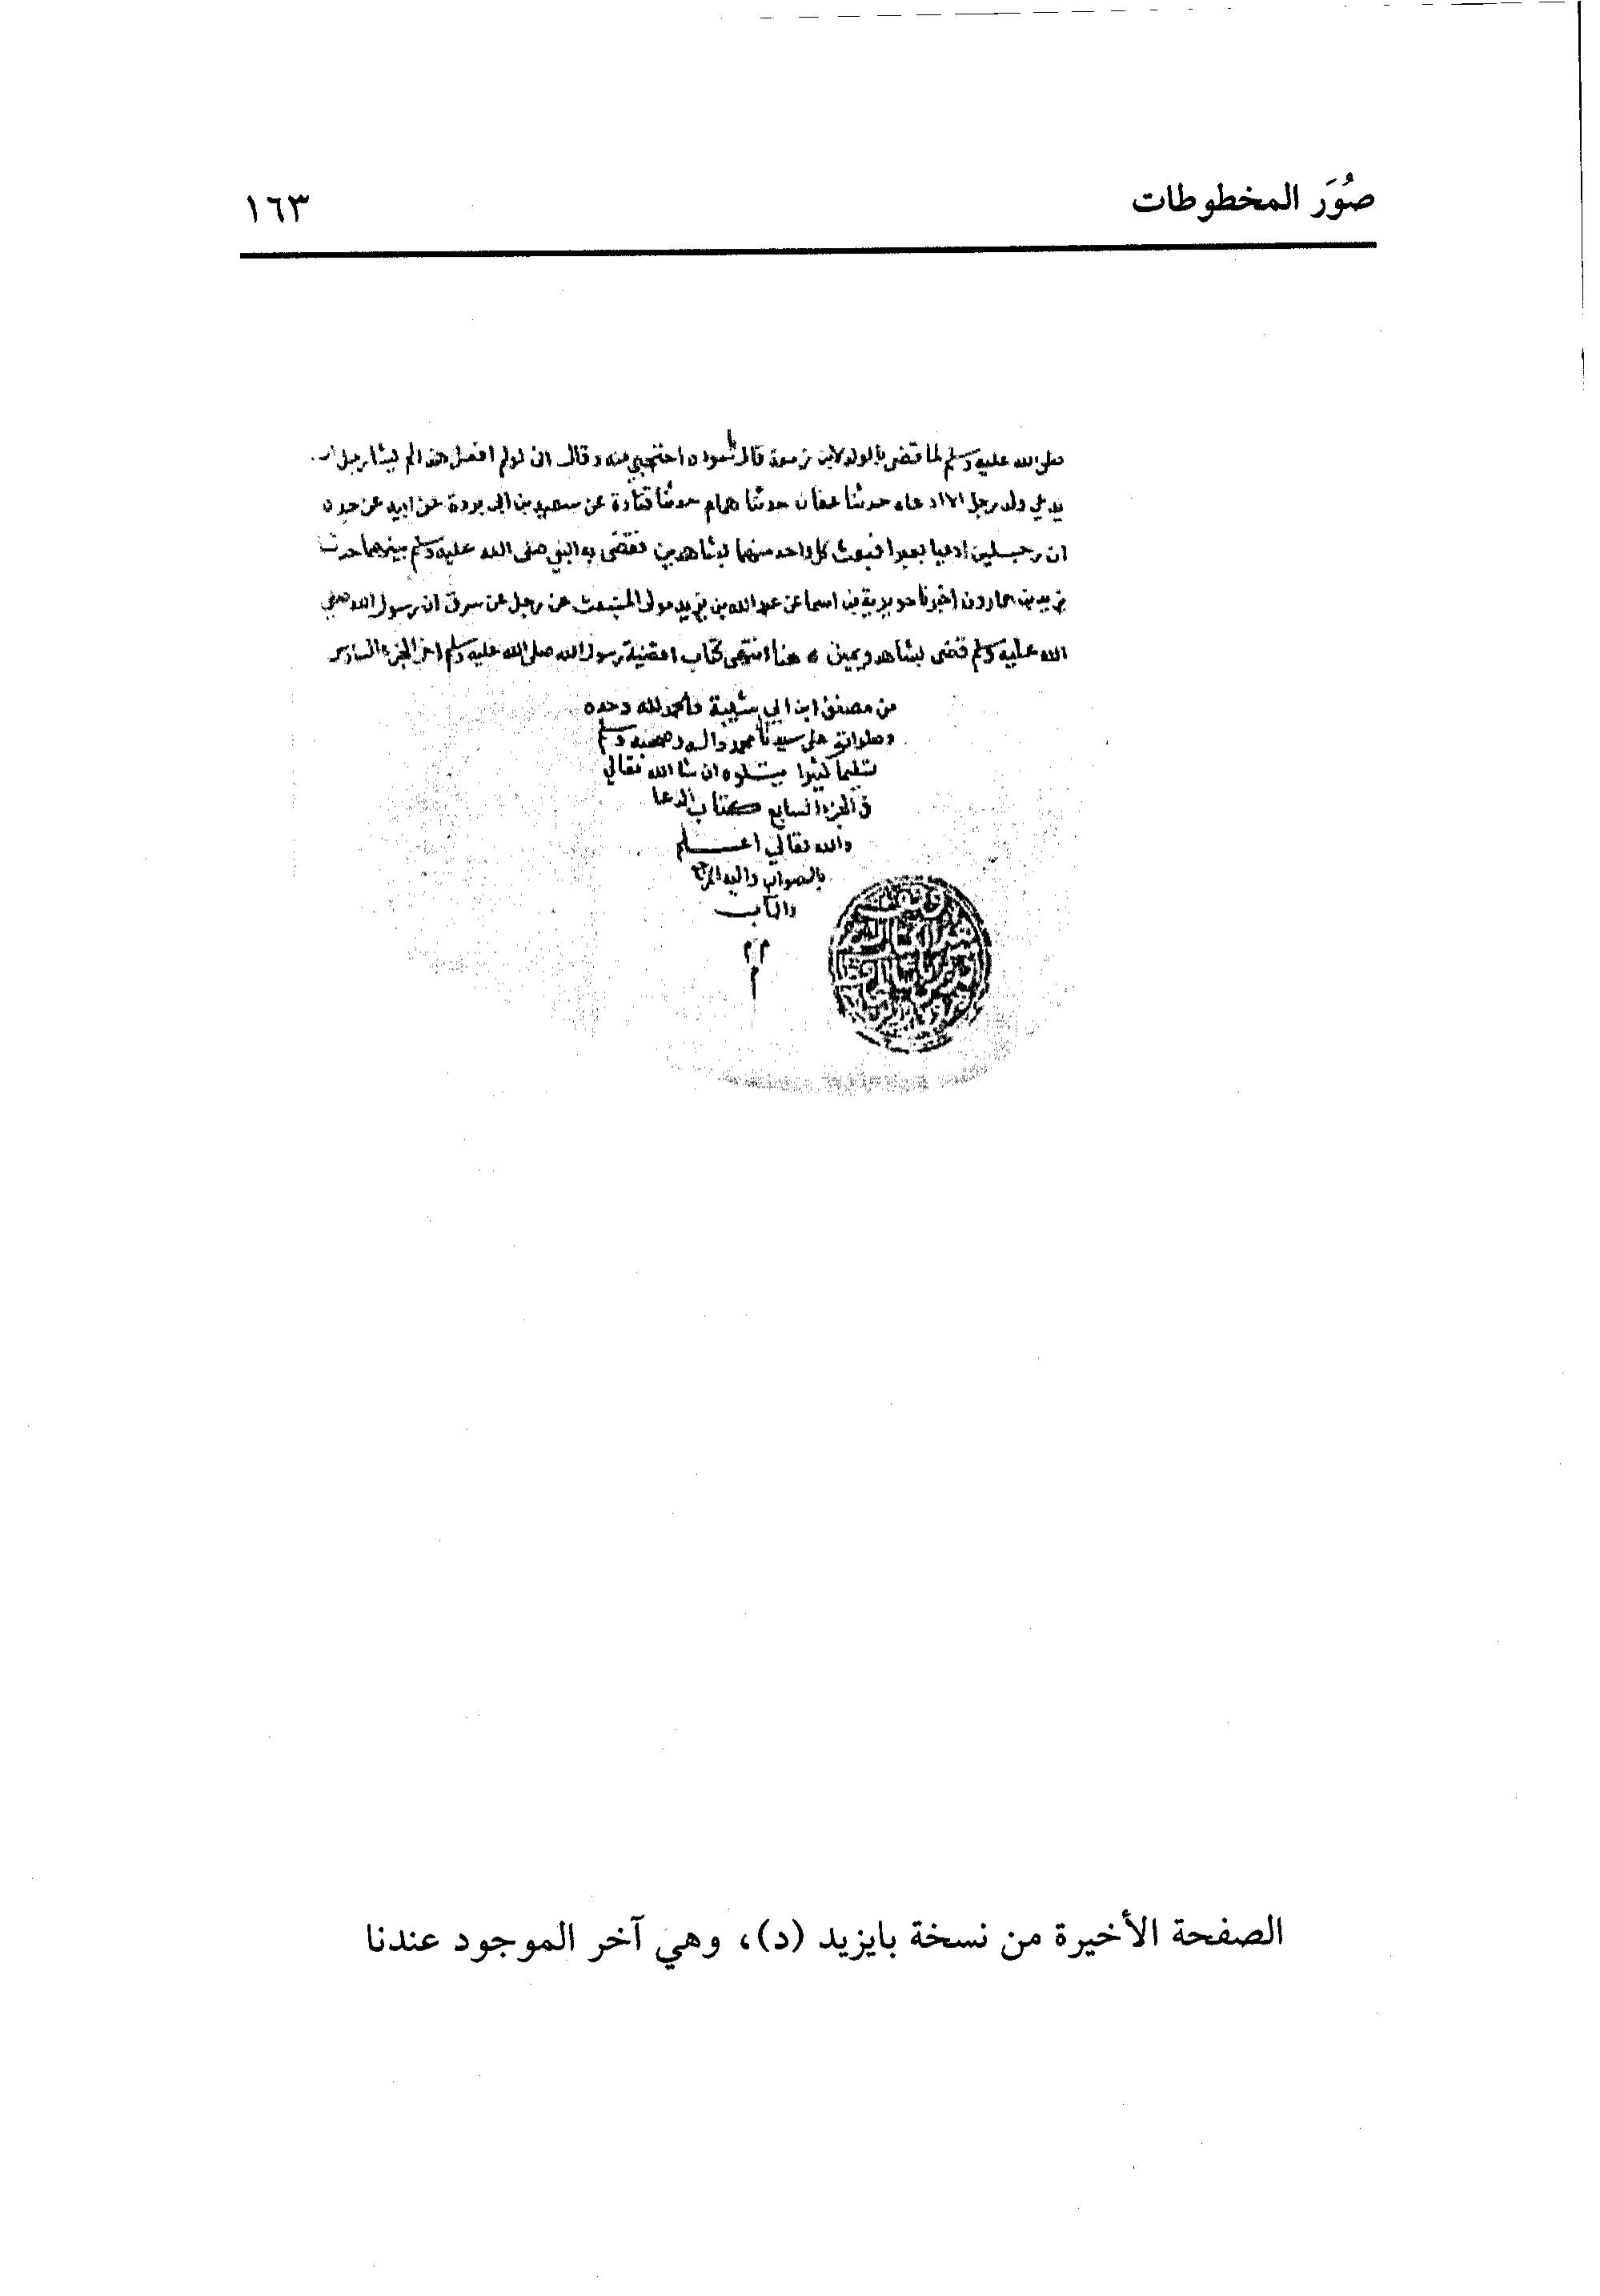 صُوَر المخطوطات
١٦٣
صلى الله عليه وسلم لما قضى بالولد لابن زمعة قال لسودة احتجبي منه وقال ان لولم افعل هذا لم يشا رجل ان
يدعي ولد رجل الا ادعاه حدثنا عفان حدثنا همام حدثنا قتادة عن سعيد بن ابي بردة عن ابيه عن جده
ان رجلين ادعيا بعيرا فبعث كل واحد منهما بشاهدين فقضى به النبي صلى الله عليه وسلم بينهما حدثنا
يزيد بن هارون اخبرنا جويرية بن اسما عن عبد الله بن يزيد مولى المنبعث عن رجل عن سرق ان رسول الله صلى
الله عليه وسلم قضى بشاهد ويمين ه هنا انتهى كتاب اقضية رسول الله صلى الله عليه وسلم اخر الجزء السادس
من مصنف ابن ابي شيبة والحمد لله وحده
وصلواته على سيدنا محمد واله وصحبه وسلم
تسليما كثيرا يتلوه ان شا الله تعالي
في الجزء السابع كتاب الدعا
والله تعالي اعلم
بالصواب واليه المرجع
والمآب
الصفحة الأخيرة من نسخة بايزيد (د)، وهي آخر الموجود عندنا